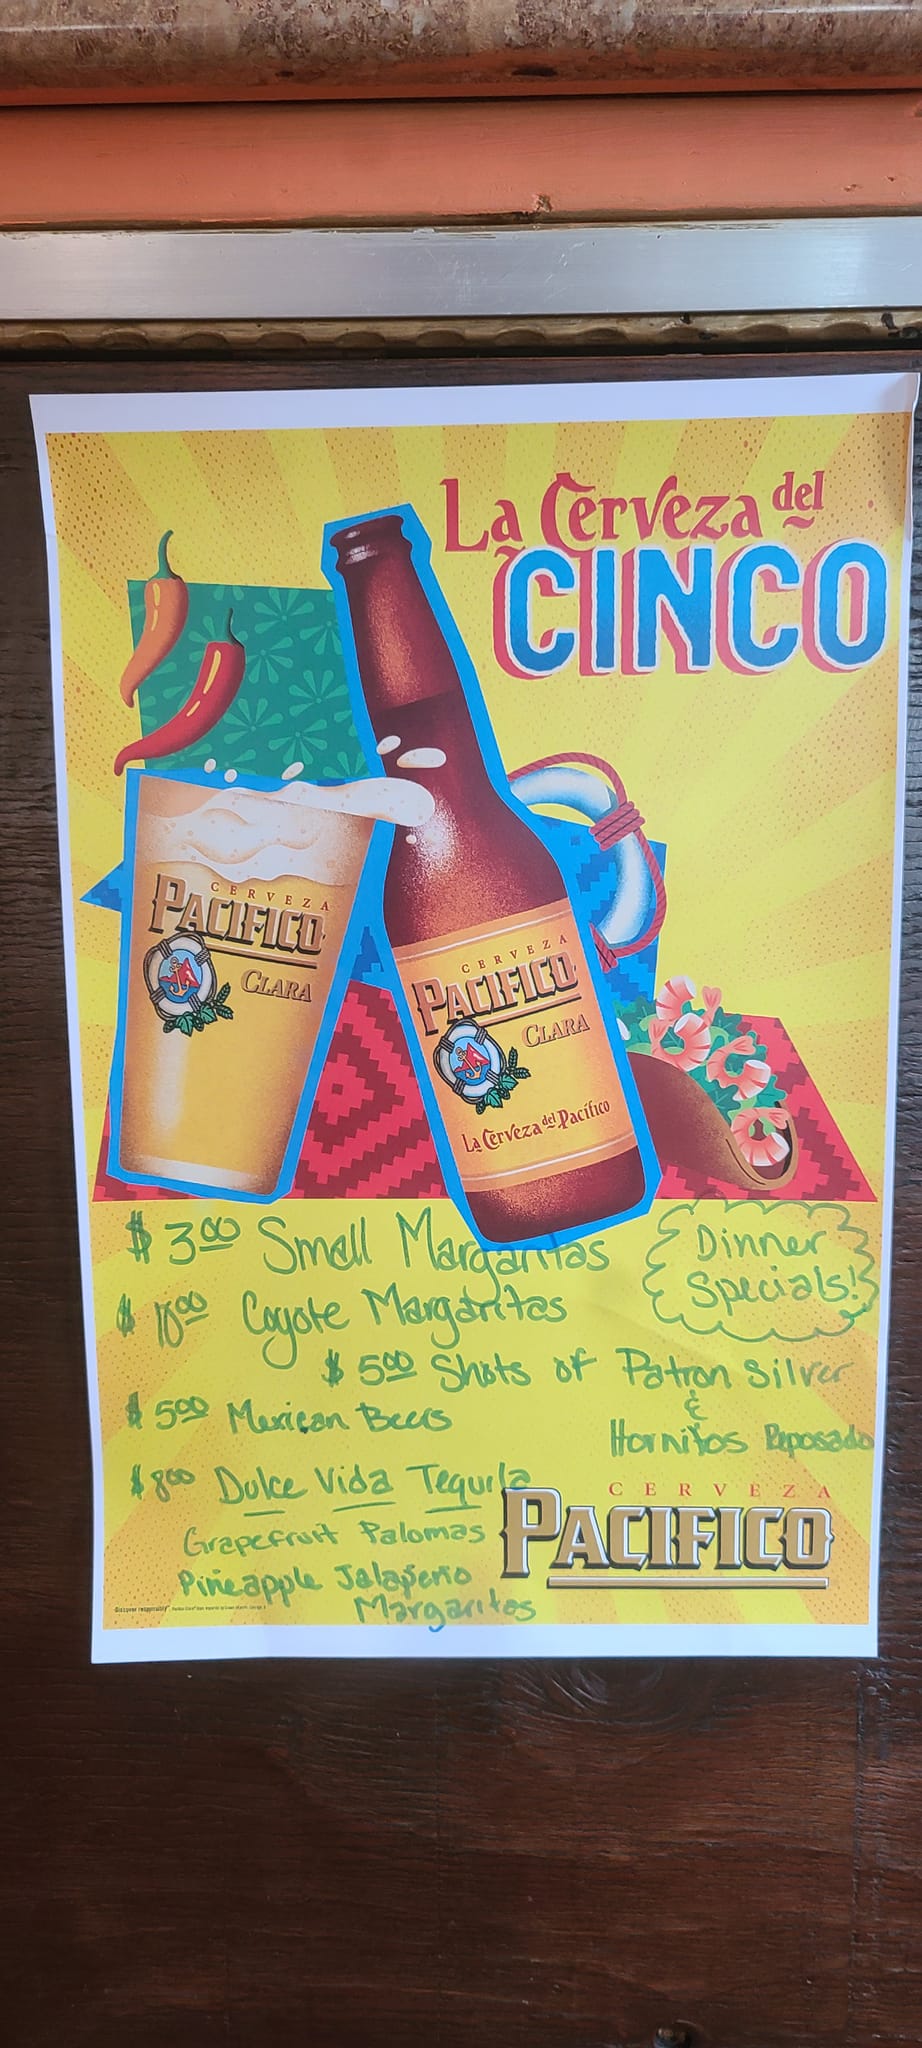 La Cerveza del
CINCO
CERVEZA
PACIFICO
CLARA
CERVEZA
PACIFICO
CLARA
La Cerveza del Pacífico
$ 3.00 Small Margaritas
Dinner
Specials!
$ 10.00 Coyote Margaritas
$ 5.00 Shots of Patron Silver
&
Hornitos Reposado
$ 5.00 Mexican Beers
$ 8.00 Dulce Vida Tequila
Grapefruit Palomas
Pineapple Jalapeño
Margaritas
CERVEZA
PACIFICO